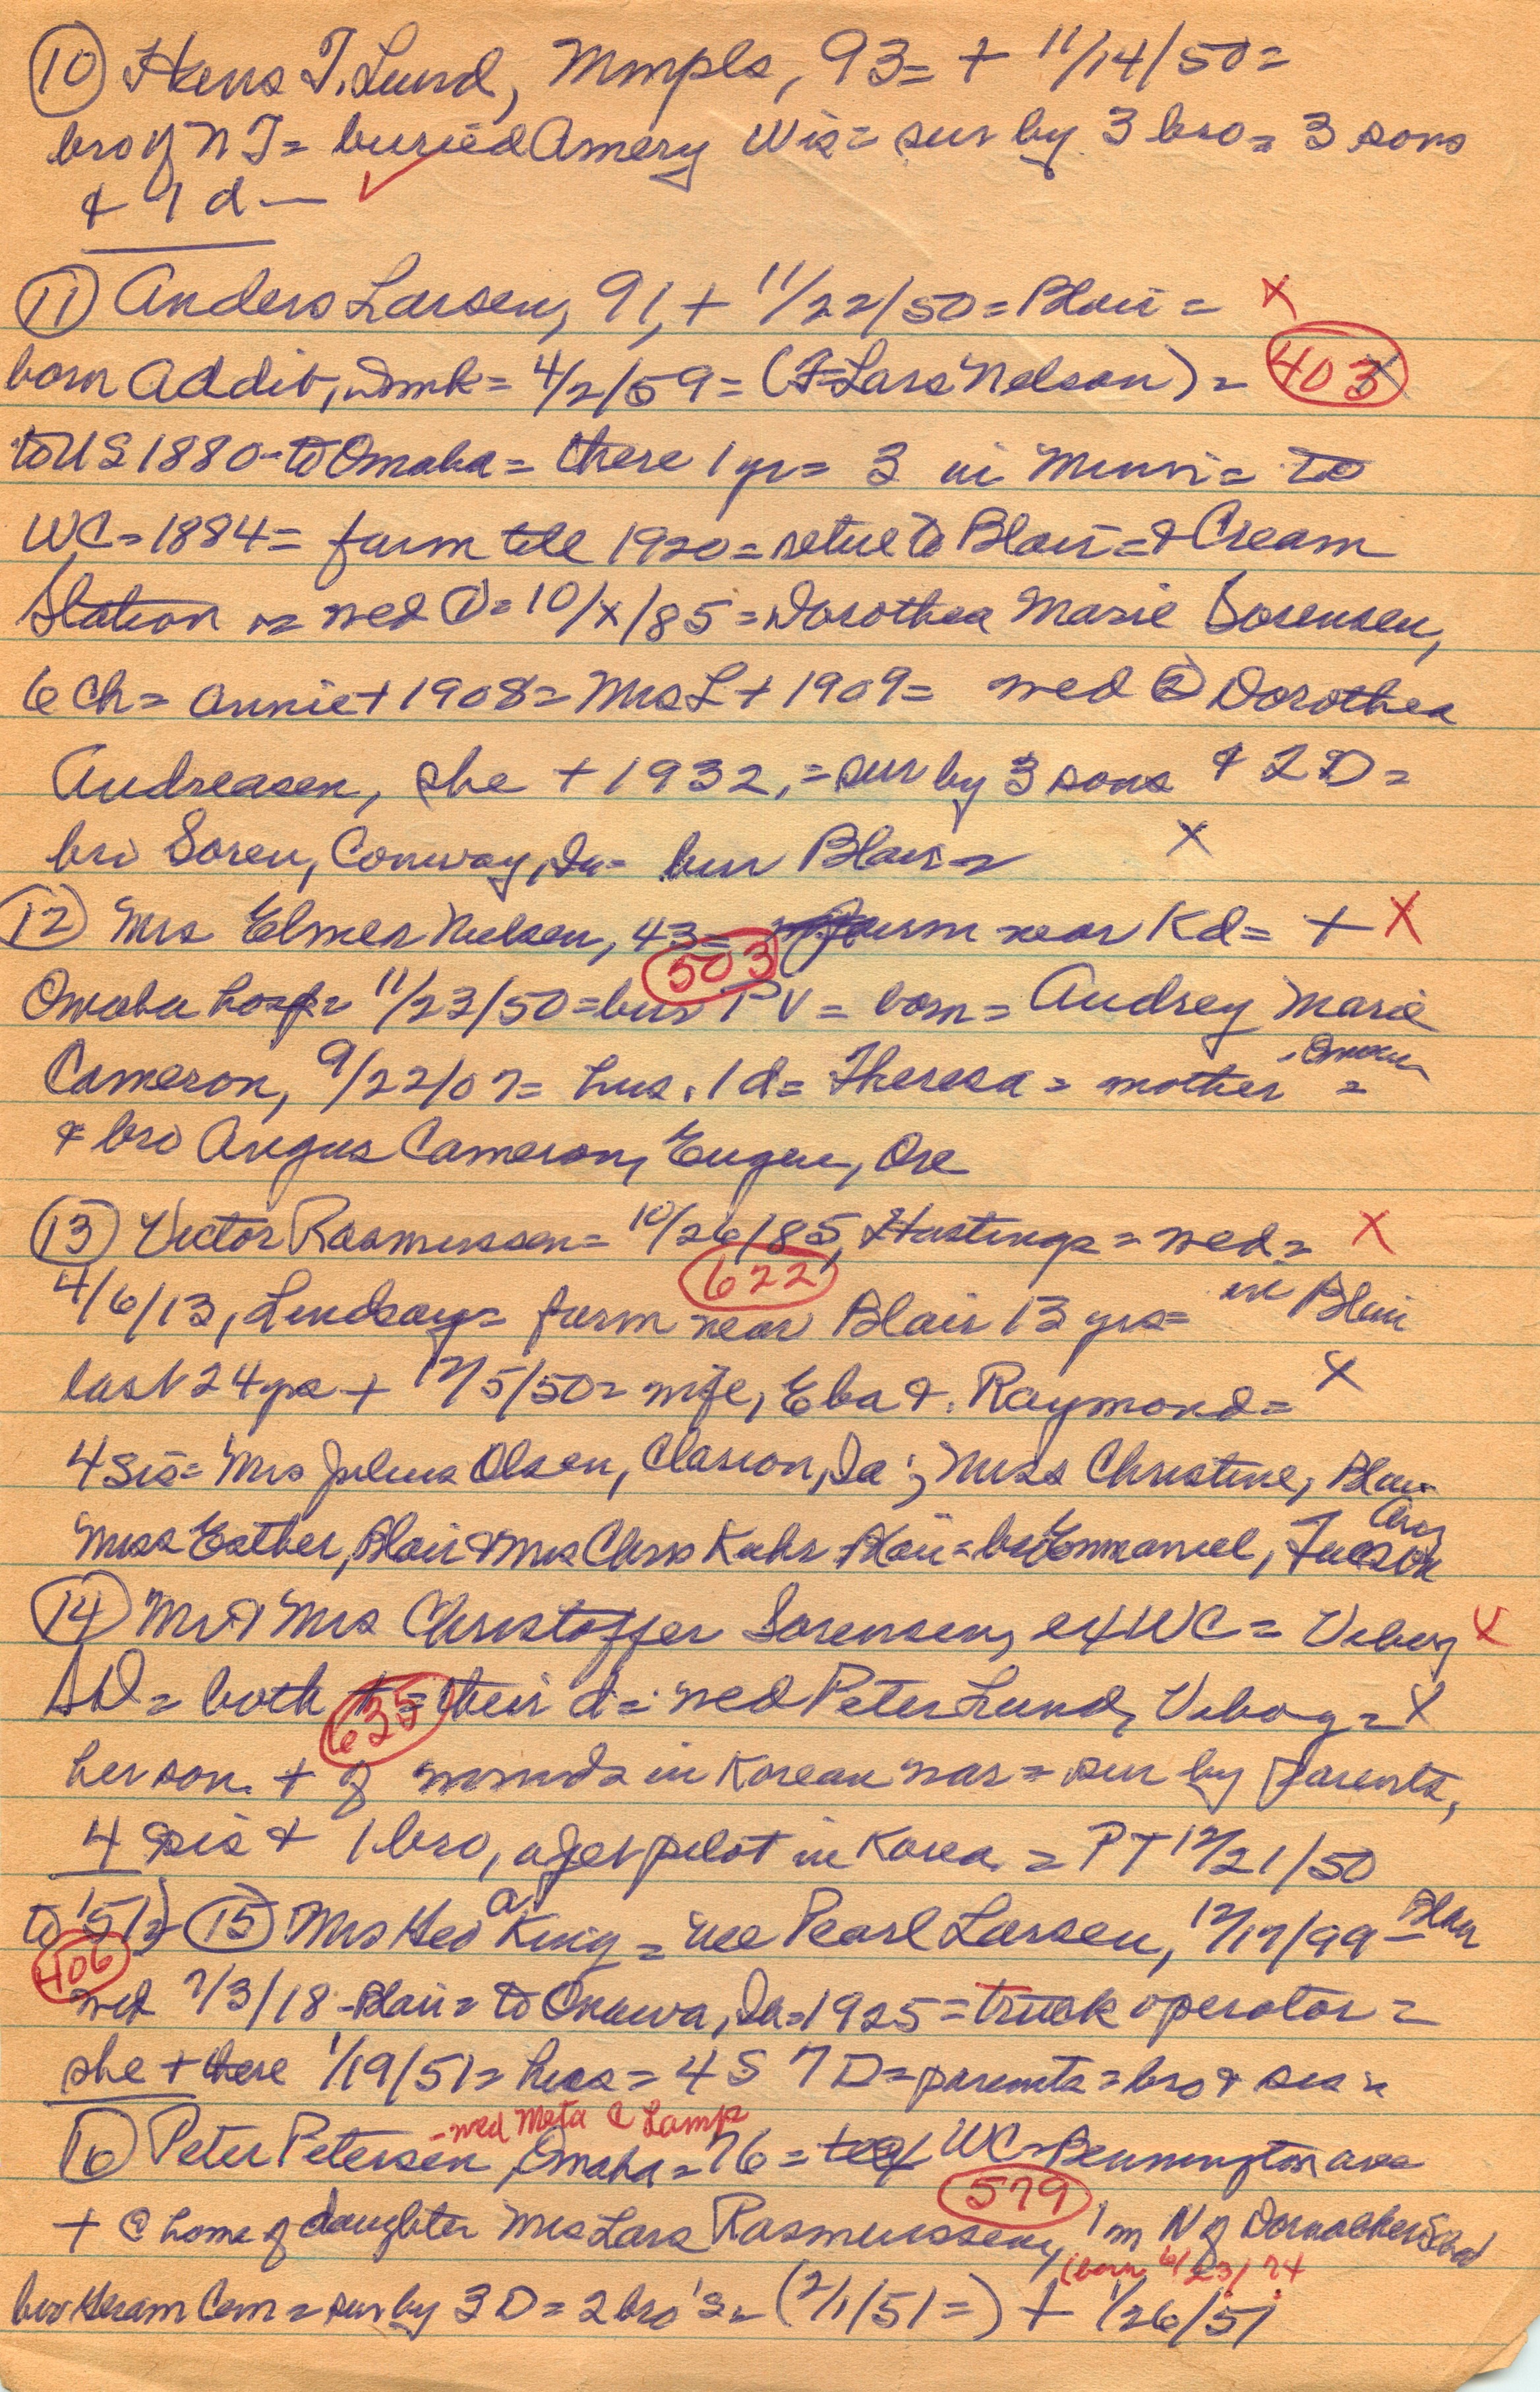 (10) Hans T. Lund, Mmpls, 93 = + 11/14/50 =
bro of NT = buried Amery Wis = sur by 3 bro = 3 sons
& 1 d —
(11) Anders Larsen, 91, + 11/22/50 = Blair = X
born Addit, Dmk = 4/2/59 = (F = Lars Nelson) = 403
to US 1880 - to Omaha = there 1 yr = 3 in = to
WC = 1884 = farm till 1920 = retire to Blair = & Cream
Station = wed (1) = 10/x/85 = Dorothea Marie Sorensen,
6 ch = Annie + 1908 = Mrs L + 1909 = wed (2) Dorothea
Andreasen, she + 1932, = sur by 3 sons & 2 D =
bro Soren, Conway, Ia = bur Blair = X
(12) Mrs Elmer Nielsen, 43 = farm near Kd = + X
503
Omaha hosp = 11/23/50 = bur PV = born = Audrey Marie
Cameron, 9/22/07 = hus. 1 d = Theresa = mother =
& bro Angus Cameron, Eugene, Ore
(13) Victor Rasmussen = 10/26/85, Hastings = wed = X
622
4/6/13, Lindsay = farm near Blair 13 yrs = in Blair
last 24 yrs + 12/5/50 = wife, Eba & . Raymond = X
4 sis = Mrs Julius Olsen, Clarion, Ia ; Miss Christine, Blair
Miss Esther, Blair & Mrs Chris Kuhr Blair = bro Emmanuel, Tucson Ariz
(14) Mr & Mrs Christoffer Sorensen, ex WC = Viborg X
SD = both + = their d = wed Peter Lund, Viborg = X
635
her son + of wounds in Korean war = sur by parents,
4 sis & 1 bro, a jet pilot in Korea = PT 12/21/50
to '51 = (15) Mrs Geo A King = nee Pearl Larsen, 12/17/99 - Blair
406
wed 7/3/18 - Blair = to Onawa, Ia = 1925 = truck operator =
she + there 1/19/51 = hus = 4 S 7 D = parents = bro & sis =
- wed Meta C Lamp
(16) Peter Petersen, Omaha = 76 = WC - Bennington area
579
+ @ home of daughter Mrs Lars Rasmussen, 1 m N of
(born 6/23/74
bur Hiram Cem = sur by 3 D = 2 bro's = (2/1/51 =) + 1/26/51